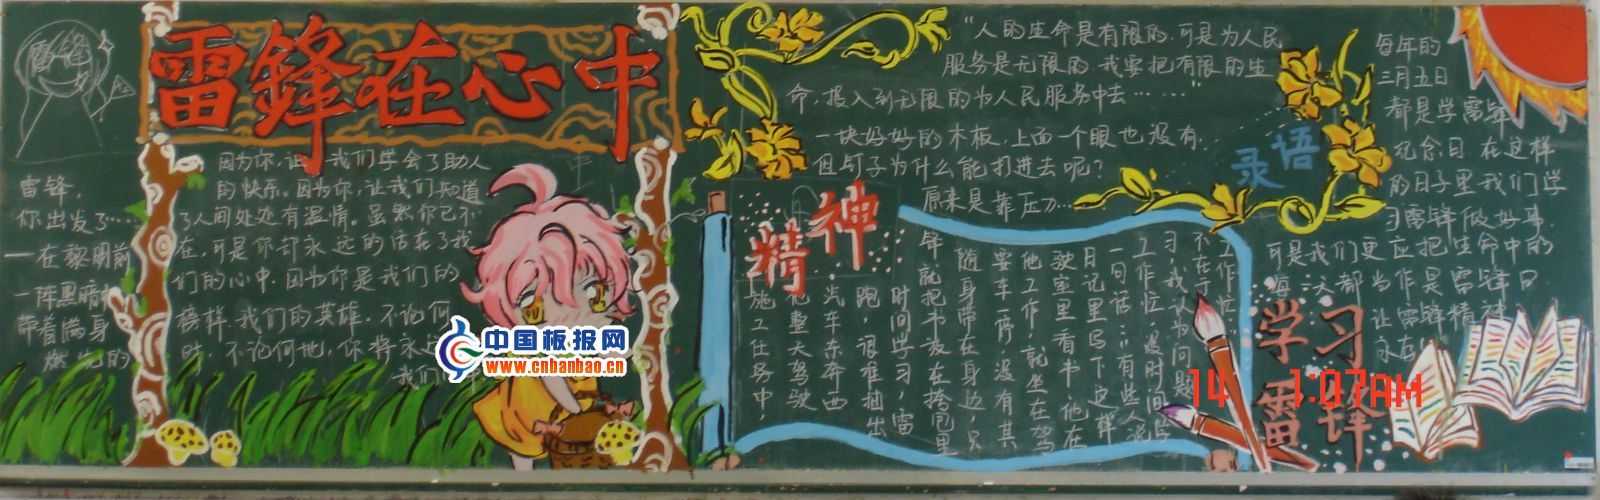 雷锋在心中
雷锋，
你出发了…
——在黎明前
一阵黑暗
带着满身
燃烧的
因为你，让我们学会了助人
的快乐。因为你，让我们知道
了人间处处有温情。虽然你已不
在，可是你却永远的活在了我
们的心中。因为你是我们的
榜样，我们的英雄。不论何
时，不论何地，你将永
我们
中国板报网
www.cnbanbao.cn
“人的生命是有限的，可是为人民
服务是无限的，我要把有限的生
命，投入到无限的为人民服务中去……”
一块好好的木板，上面一个眼也没有，
但钉子为什么能打进去呢？
原来是靠压力…
语录
精神
不在于工作忙
习，我认为问题
工作忙，没时间
一句话：有些人说
日记里写下这样
驶室里看书，他在
他工作，就坐在驾
要车一停，没有其
随身带在身边，只
锋就把书装在挎包里
时间学习，雷
跑，很难抽出
汽车东奔西
他整天驾驶
施工任务中，
每年的
三月五日
都是学雷锋
纪念日 在这样
的日子里我们学
习雷锋做好事
可是我们更应把生命中的
每一天都当作是雷锋日
让雷锋精神
永在
学习
雷锋
14 1:07AM